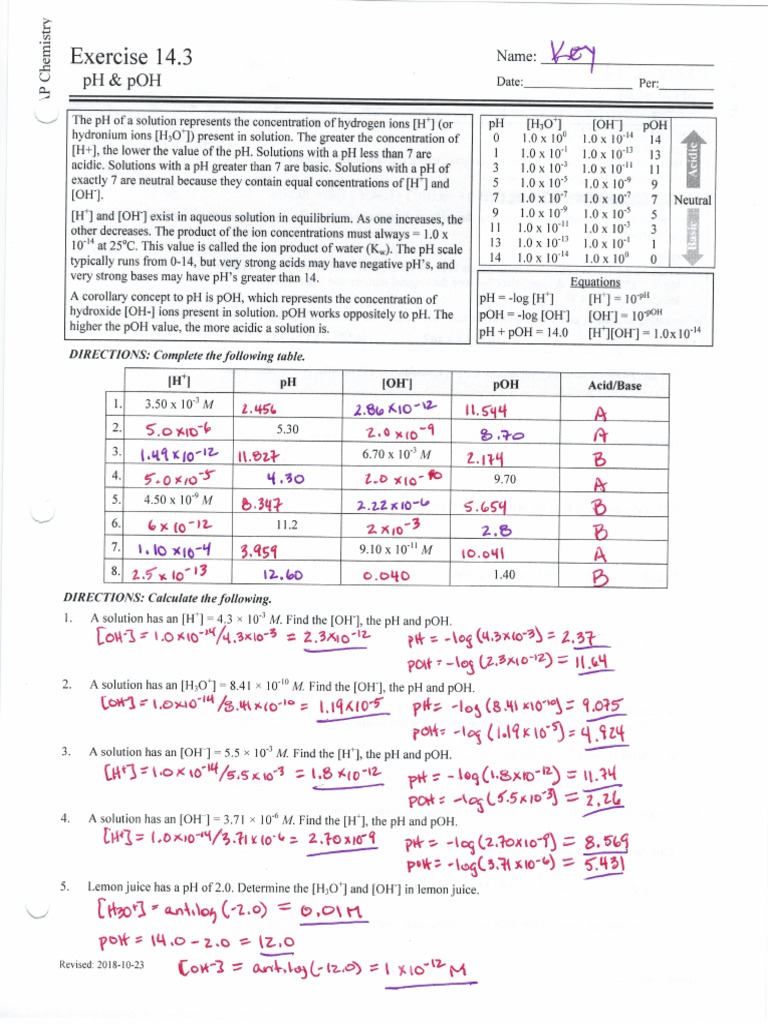 AP Chemistry
Exercise 14.3
pH & pOH
Name: Key
Date: Per:
The pH of a solution represents the concentration of hydrogen ions [H⁺] (or
hydronium ions [H₃O⁺]) present in solution. The greater the concentration of
[H+], the lower the value of the pH. Solutions with a pH less than 7 are
acidic. Solutions with a pH greater than 7 are basic. Solutions with a pH of
exactly 7 are neutral because they contain equal concentrations of [H⁺] and
[OH⁻].
[H⁺] and [OH⁻] exist in aqueous solution in equilibrium. As one increases, the
other decreases. The product of the ion concentrations must always = 1.0 x
10⁻¹⁴ at 25°C. This value is called the ion product of water (Kw). The pH scale
typically runs from 0-14, but very strong acids may have negative pH's, and
very strong bases may have pH's greater than 14.
A corollary concept to pH is pOH, which represents the concentration of
hydroxide [OH-] ions present in solution. pOH works oppositely to pH. The
higher the pOH value, the more acidic a solution is.
pH [H₃O⁺] [OH⁻] pOH
0 1.0 x 10⁰ 1.0 x 10⁻¹⁴ 14
1 1.0 x 10⁻¹ 1.0 x 10⁻¹³ 13
3 1.0 x 10⁻³ 1.0 x 10⁻¹¹ 11
5 1.0 x 10⁻⁵ 1.0 x 10⁻⁹ 9
7 1.0 x 10⁻⁷ 1.0 x 10⁻⁷ 7 Neutral
9 1.0 x 10⁻⁹ 1.0 x 10⁻⁵ 5
11 1.0 x 10⁻¹¹ 1.0 x 10⁻³ 3
13 1.0 x 10⁻¹³ 1.0 x 10⁻¹ 1
14 1.0 x 10⁻¹⁴ 1.0 x 10⁰ 0
Acidic
Basic
Equations
pH = -log [H⁺] [H⁺] = 10⁻ᵖᴴ
pOH = -log [OH⁻] [OH⁻] = 10⁻ᵖᴼᴴ
pH + pOH = 14.0 [H⁺][OH⁻] = 1.0x10⁻¹⁴
DIRECTIONS: Complete the following table.
[H⁺] pH [OH⁻] pOH Acid/Base
1. 3.50 x 10⁻³ M 2.456 2.86 x 10⁻¹² 11.544 A
2. 5.0 x 10⁻⁶ 5.30 2.0 x 10⁻⁹ 8.70 A
3. 1.49 x 10⁻¹² 11.827 6.70 x 10⁻³ M 2.174 B
4. 5.0 x 10⁻⁵ 4.30 2.0 x 10⁻¹⁰ 9.70 A
5. 4.50 x 10⁻⁹ M 8.347 2.22 x 10⁻⁶ 5.654 B
6. 6 x 10⁻¹² 11.2 2 x 10⁻³ 2.8 B
7. 1.10 x 10⁻⁴ 3.959 9.10 x 10⁻¹¹ M 10.041 A
8. 2.5 x 10⁻¹³ 12.60 0.040 1.40 B
DIRECTIONS: Calculate the following.
1. A solution has an [H⁺] = 4.3 × 10⁻³ M. Find the [OH⁻], the pH and pOH.
[OH⁻] = 1.0 x 10⁻¹⁴/4.3 x 10⁻³ = 2.3 x 10⁻¹² pH = -log(4.3 x 10⁻³) = 2.37
pOH = -log(2.3 x 10⁻¹²) = 11.64
2. A solution has an [H₃O⁺] = 8.41 × 10⁻¹⁰ M. Find the [OH⁻], the pH and pOH.
[OH⁻] = 1.0 x 10⁻¹⁴/8.41 x 10⁻¹⁰ = 1.19 x 10⁻⁵ pH = -log(8.41 x 10⁻¹⁰) = 9.075
pOH = -log(1.19 x 10⁻⁵) = 4.924
3. A solution has an [OH⁻] = 5.5 × 10⁻³ M. Find the [H⁺], the pH and pOH.
[H⁺] = 1.0 x 10⁻¹⁴/5.5 x 10⁻³ = 1.8 x 10⁻¹² pH = -log(1.8 x 10⁻¹²) = 11.74
pOH = -log(5.5 x 10⁻³) = 2.26
4. A solution has an [OH⁻] = 3.71 × 10⁻⁶ M. Find the [H⁺], the pH and pOH.
[H⁺] = 1.0 x 10⁻¹⁴/3.71 x 10⁻⁶ = 2.70 x 10⁻⁹ pH = -log(2.70 x 10⁻⁹) = 8.569
pOH = -log(3.71 x 10⁻⁶) = 5.431
5. Lemon juice has a pH of 2.0. Determine the [H₃O⁺] and [OH⁻] in lemon juice.
[H3O⁺] = antilog(-2.0) = 0.01M
pOH = 14.0 - 2.0 = 12.0
[OH⁻] = antilog(-12.0) = 1 x 10⁻¹² M
Revised: 2018-10-23